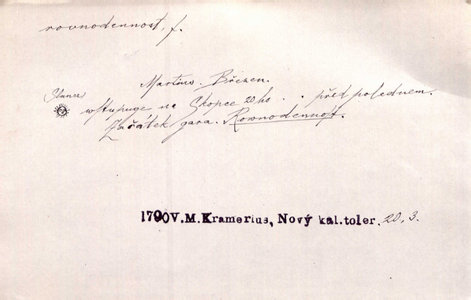 rovnodennost, f.
Martius. Březen.
Slunce
wstupuge na Skopce 20. ho . . před polednem.
Začátek gara. Rownodennost.
1790 V.M.Kramerius, Nový kal.toler. 20, 3.